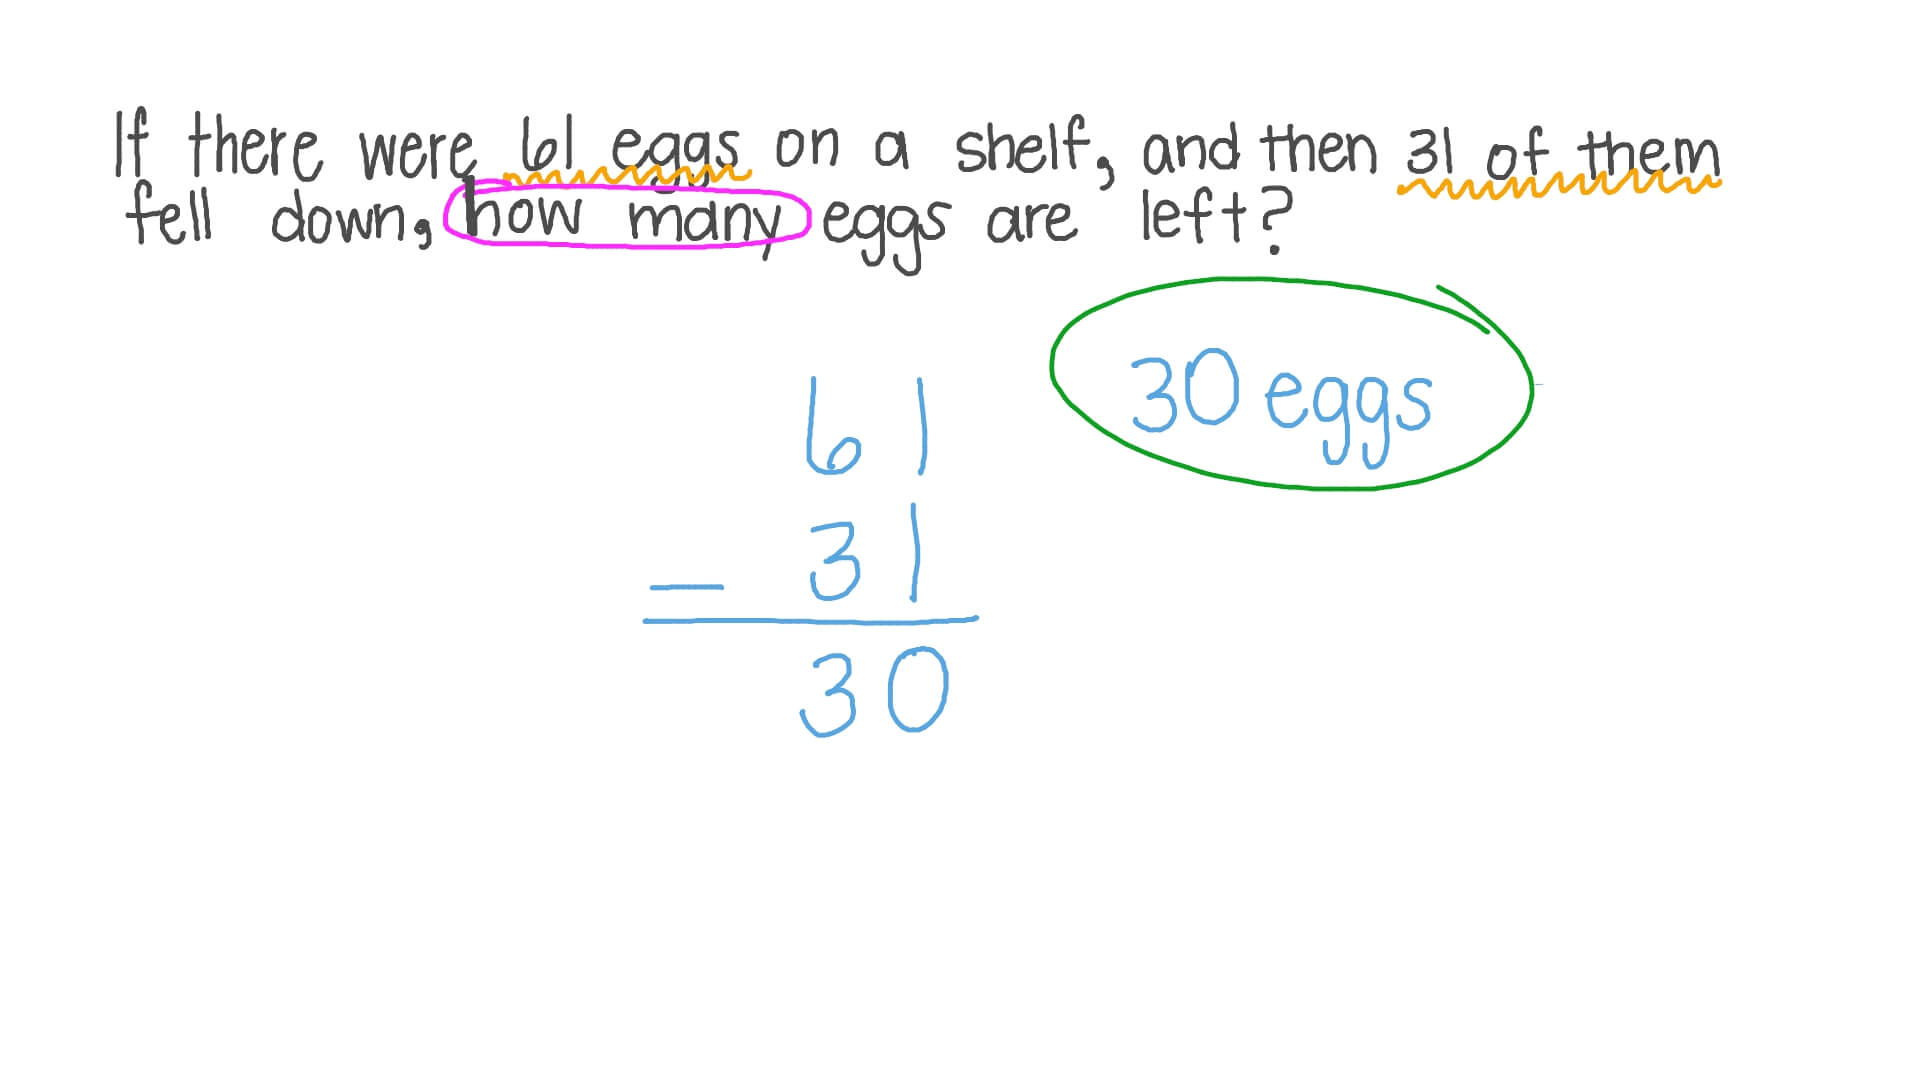 If there were 61 eggs on a shelf, and then 31 of them
fell down, how many eggs are left?
30 eggs
61
- 31
30